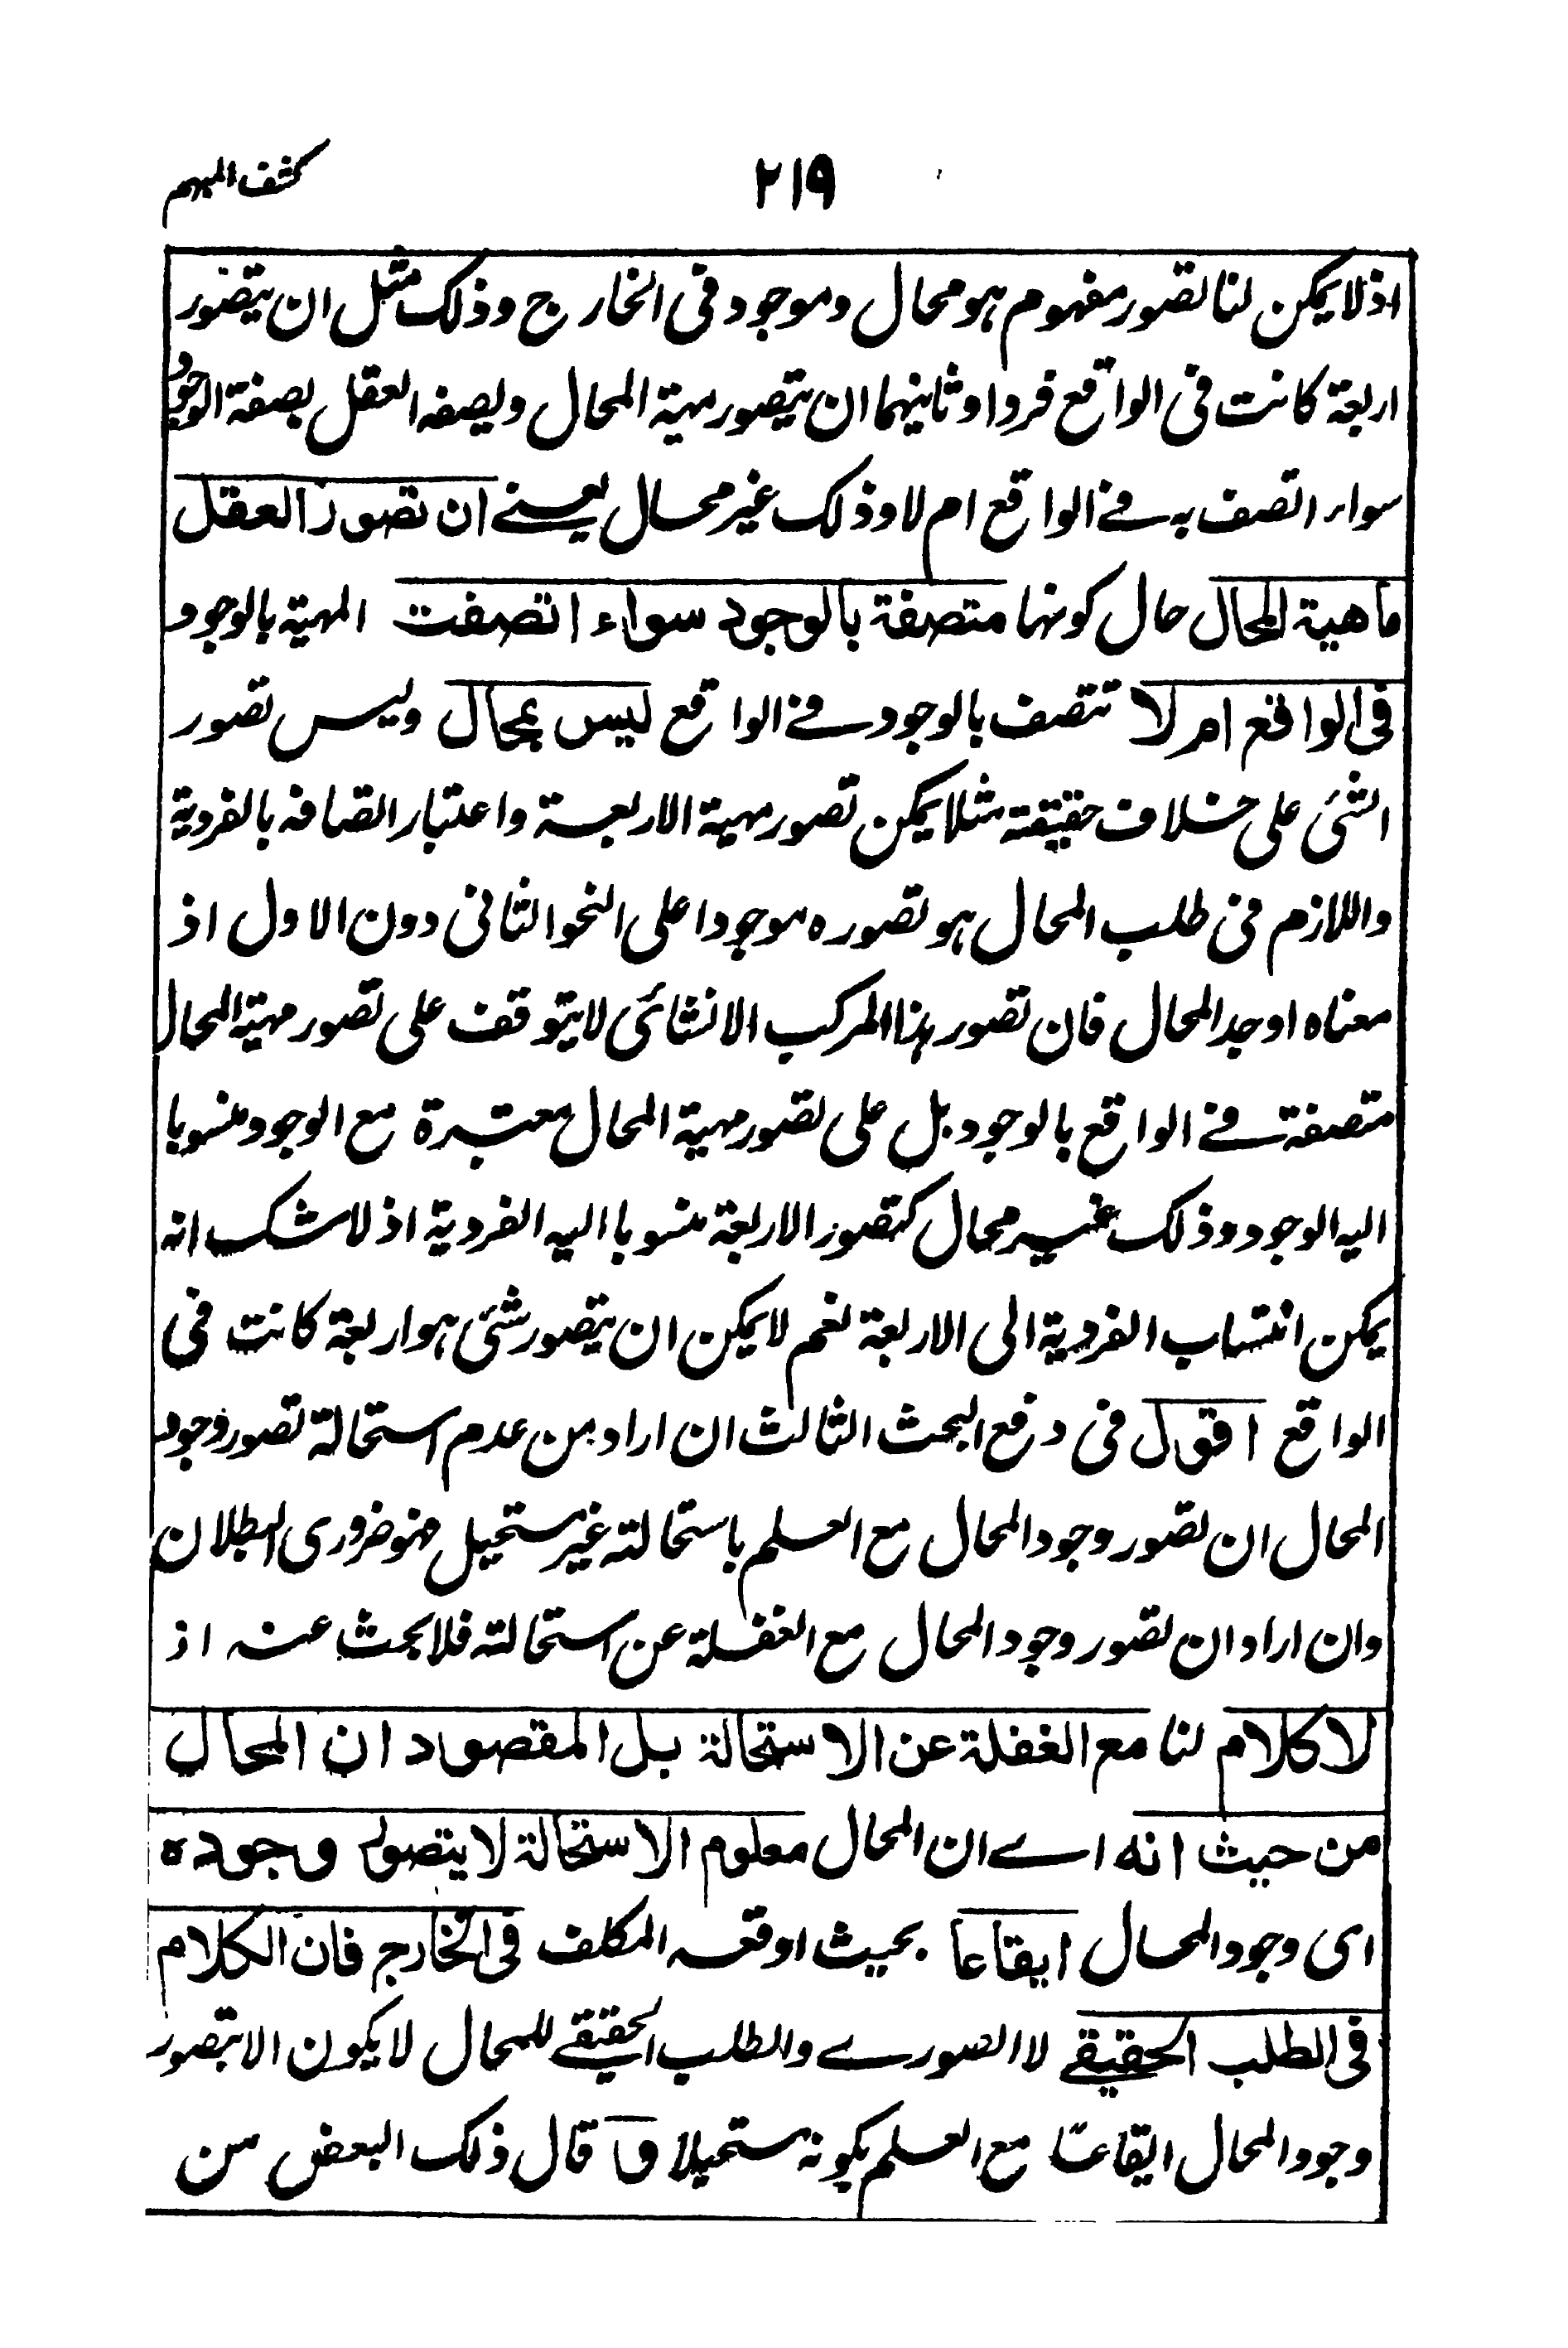 كشف المبهم
٢١٩
اذ لا يمكن لنا تصور مفهوم هو محال وموجود فى الخارج وذلك مثل ان يتصور
اربعة كانت فى الواقع فردا وثانيهما ان يتصور مهية المحال ويصفه العقل بصفة الوجود
سواء اتصف به فے الواقع ام لا وذلك غير محال يعنے ان تصور العقل
ماهية المحال حال كونها متصفة بالوجود سواء اتصفت المهية بالوجود
فى الواقع ام لا تتصف بالوجود فے الواقع ليس بمحال وليس تصور
الشئ على خلاف حقيقته مثلا يمكن تصور مهية الاربعة واعتبار اتصافه بالفردية
واللازم فى طلب المحال هو تصوره موجودا على النحو الثانى دون الاول اذ
معناه اوجد المحال فان تصور هذا المركب الانشائى لا يتوقف على تصور مهية المحال
متصفة فے الواقع بالوجود بل على تصور مهية المحال معتبرة مع الوجود منسوبا
اليه الوجود وذلك غير محال كتصور الاربعة منسوبا اليه الفردية اذ لا شك انه
يمكن انتساب الفردية الى الاربعة نعم لا يمكن ان يتصور شئ هو اربعة كانت فى
الواقع اقول فى دفع البحث الثالث ان اراد من عدم استحالة تصور وجود
المحال ان تصور وجود المحال مع العلم باستحالته غير مستحيل فهو ضرورى البطلان
وان اراد ان تصور وجود المحال مع الغفلة عن استحالته فلا بحث عنه اذ
لا كلام لنا مع الغفلة عن الاستحالة بل المقصود ان المحال
من حيث انه اے ان المحال معلوم الاستحالة لا يتصور وجوده
اى وجود المحال ايقاعا بحيث اوقعه المكلف فى الخارج فان الكلام
فى الطلب الحقيقے لا الصورے والطلب الحقيقے للمحال لا يكون الا بتصور
وجود المحال ايقاعا مع العلم بكونه مستحيلا و قال ذلك البعض من